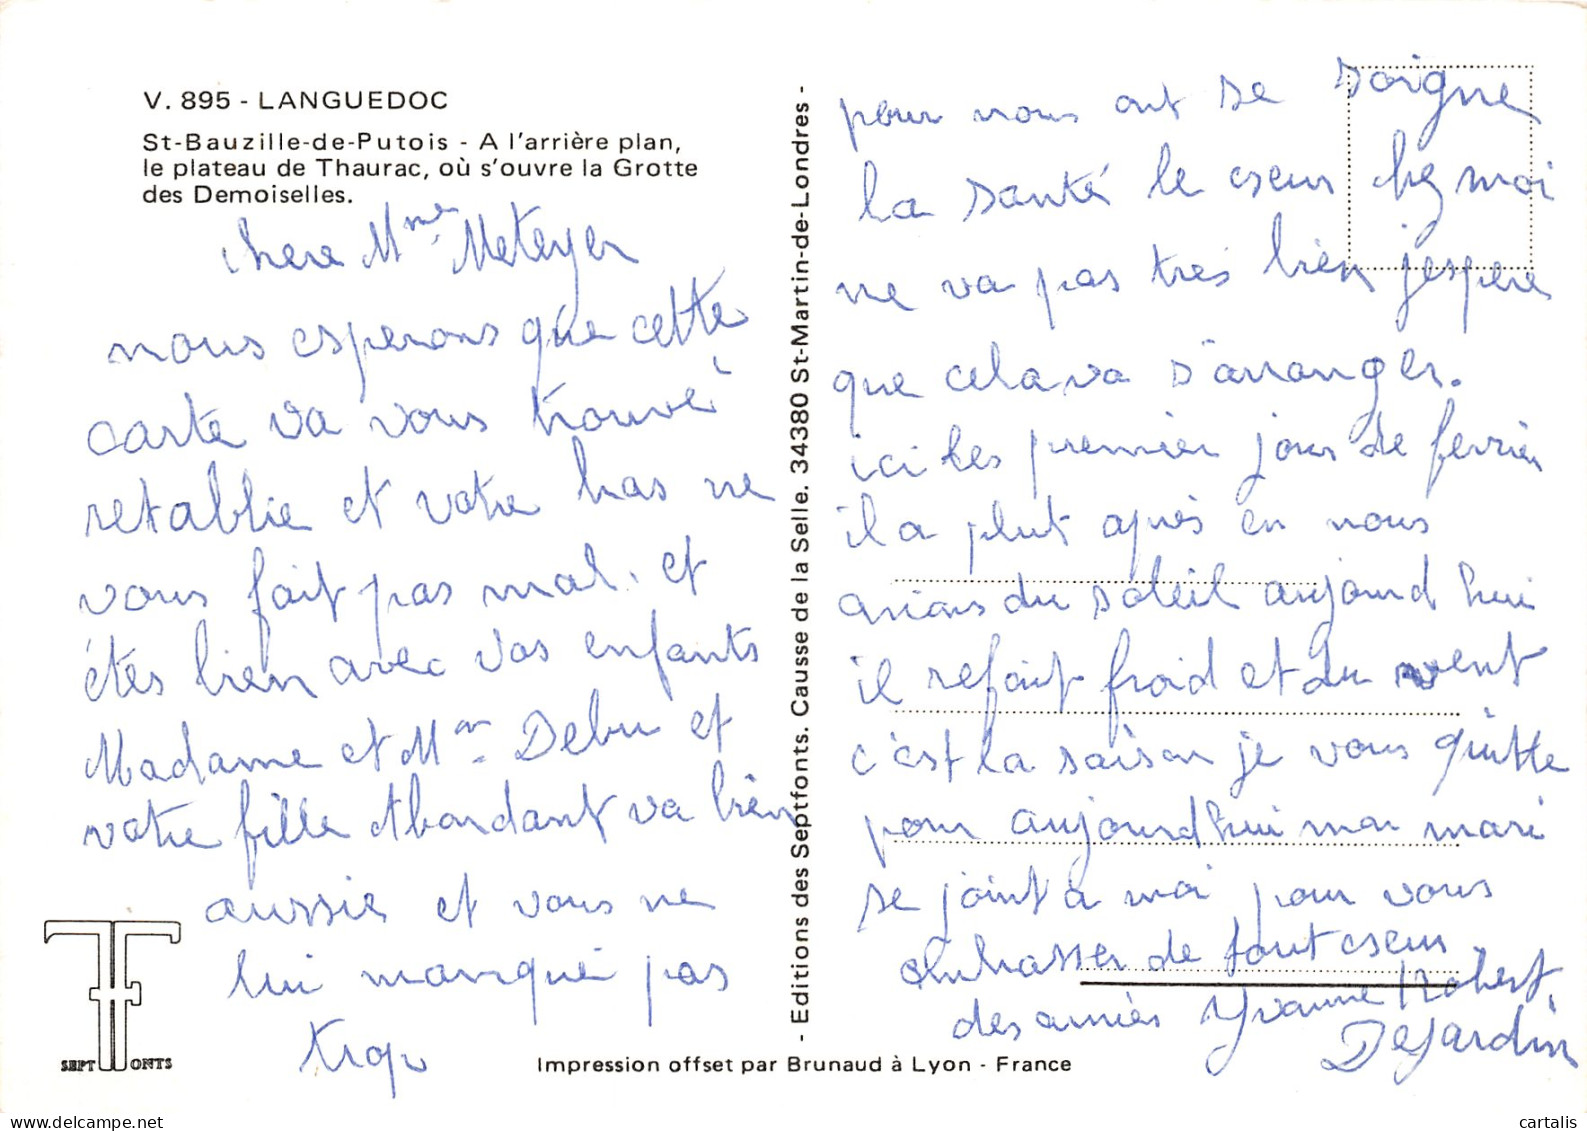 V. 895 - LANGUEDOC
St-Bauzille-de-Putois - A l'arrière plan,
le plateau de Thaurac, où s'ouvre la Grotte
des Demoiselles.
chere Mme Meteyer
nous esperons que cette
carte va vous trouvé
retablie et votre bras ne
vous fait pas mal. et
étes bien avec vos enfants
Madame et Mr Debu et
votre fille Abondant va bien
aussie et vous ne
lui manqué pas
trop
SEPT FONTS
- Editions des Septfonts. Causse de la Selle. 34380 St-Martin-de-Londres -
pour nous ont se soigne
la santé le cœur chez moi
ne va pas trés bien j'espere
que cela va s'arranger.
ici les premier jours de fevrier
il a plut aprés en nous
avions du soleil aujourd hui
il refait froid et du vent
c'est la saison je vous quitte
pour aujourd'hui mon mari
se joint a moi pour vous
embrasser de tout cœur
des amies Yvonne Robert
Dejardin
Impression offset par Brunaud à Lyon - France
cartalis